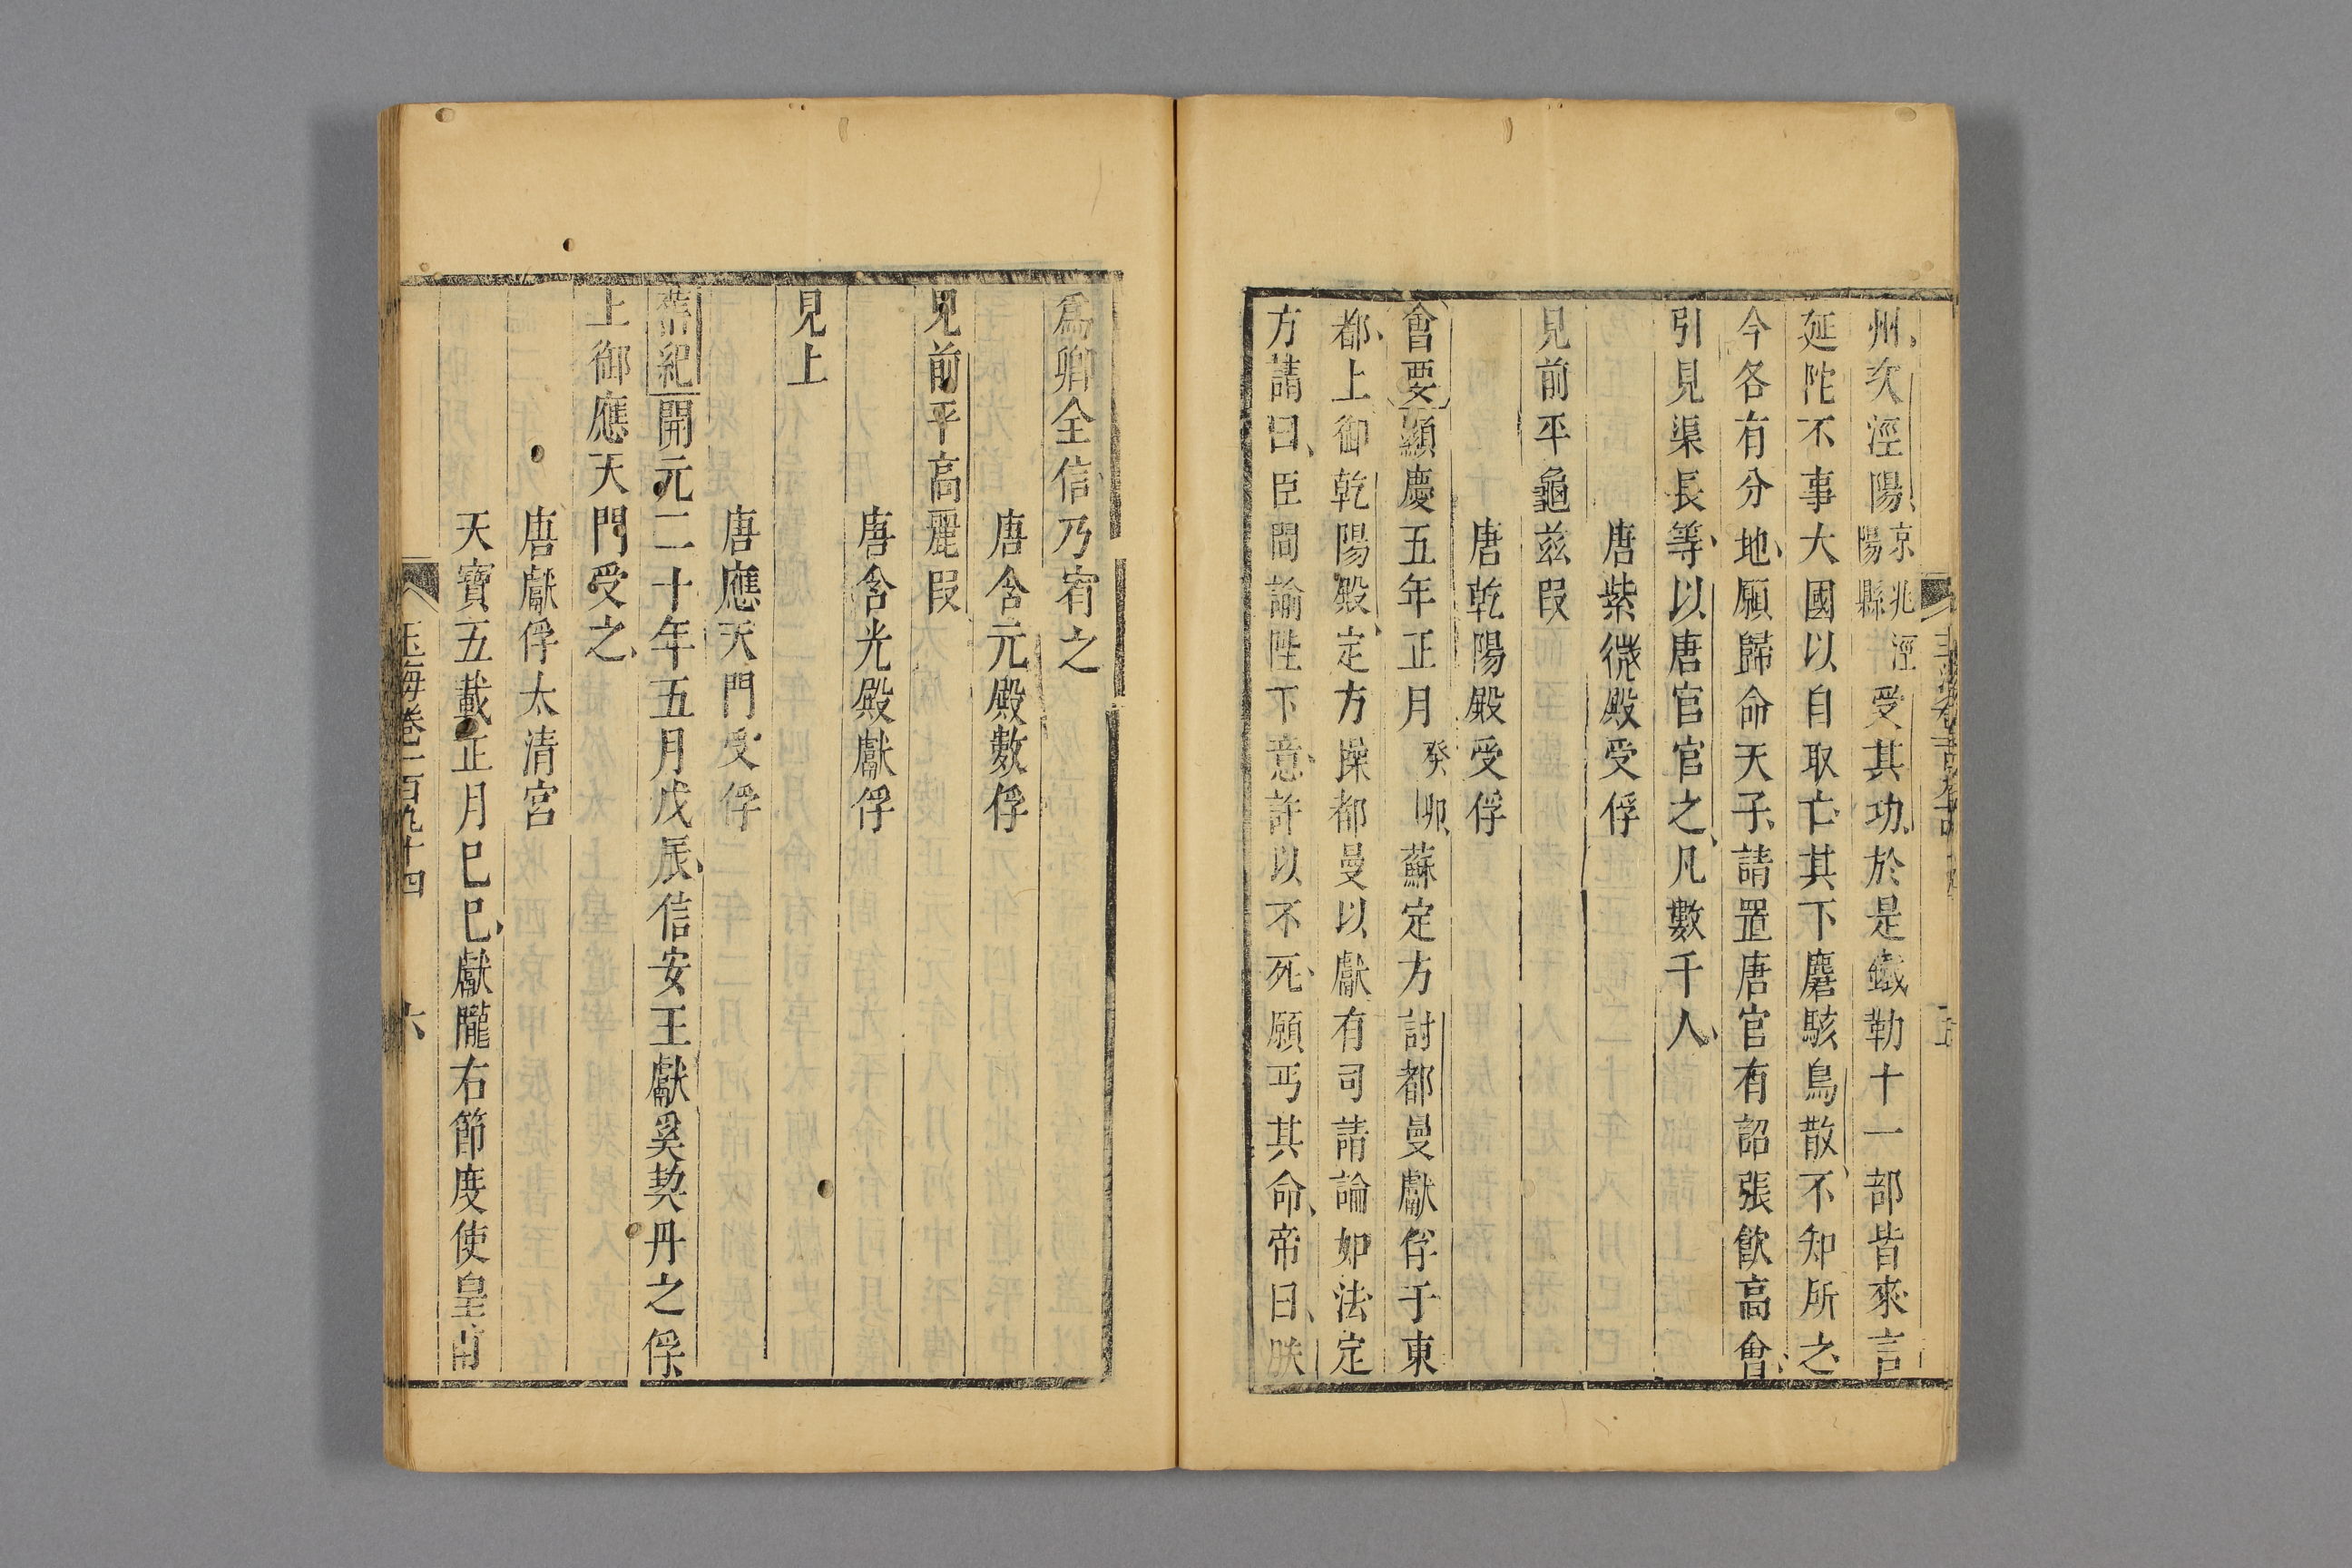 州次涇陽京兆涇陽縣受其功於是鐵勒十一部皆來言
延陀不事大國以自取亡其下麏駭鳥散不知所之
今各有分地願歸命天子請置唐官有詔張飲高會
引見渠長等以唐官官之凡數千人
唐紫微殿受俘
見前平龜茲叚
唐乾陽殿受俘
會要顯慶五年正月癸卯蘇定方討都曼獻俘于東
都上御乾陽殿定方操都曼以獻有司請論如法定
方請曰臣間諭陛下意許以不死願丐其命帝曰朕
爲卿全信乃宥之
唐含元殿數俘
見前平高麗叚
唐含光殿獻俘
見上
唐應天門受俘
舊紀開元二十年五月戊辰信安王獻奚契丹之俘
上御應天門受之
唐獻俘太清宮
天寶五載正月巳巳獻隴右節度使皇甫
玉海卷一百九十四 六